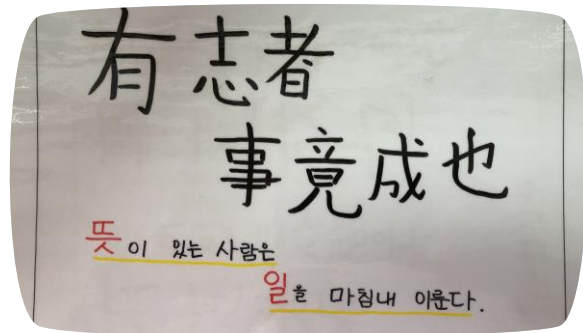 有志者
事竟成也
뜻이 있는 사람은
일을 마침내 이룬다.